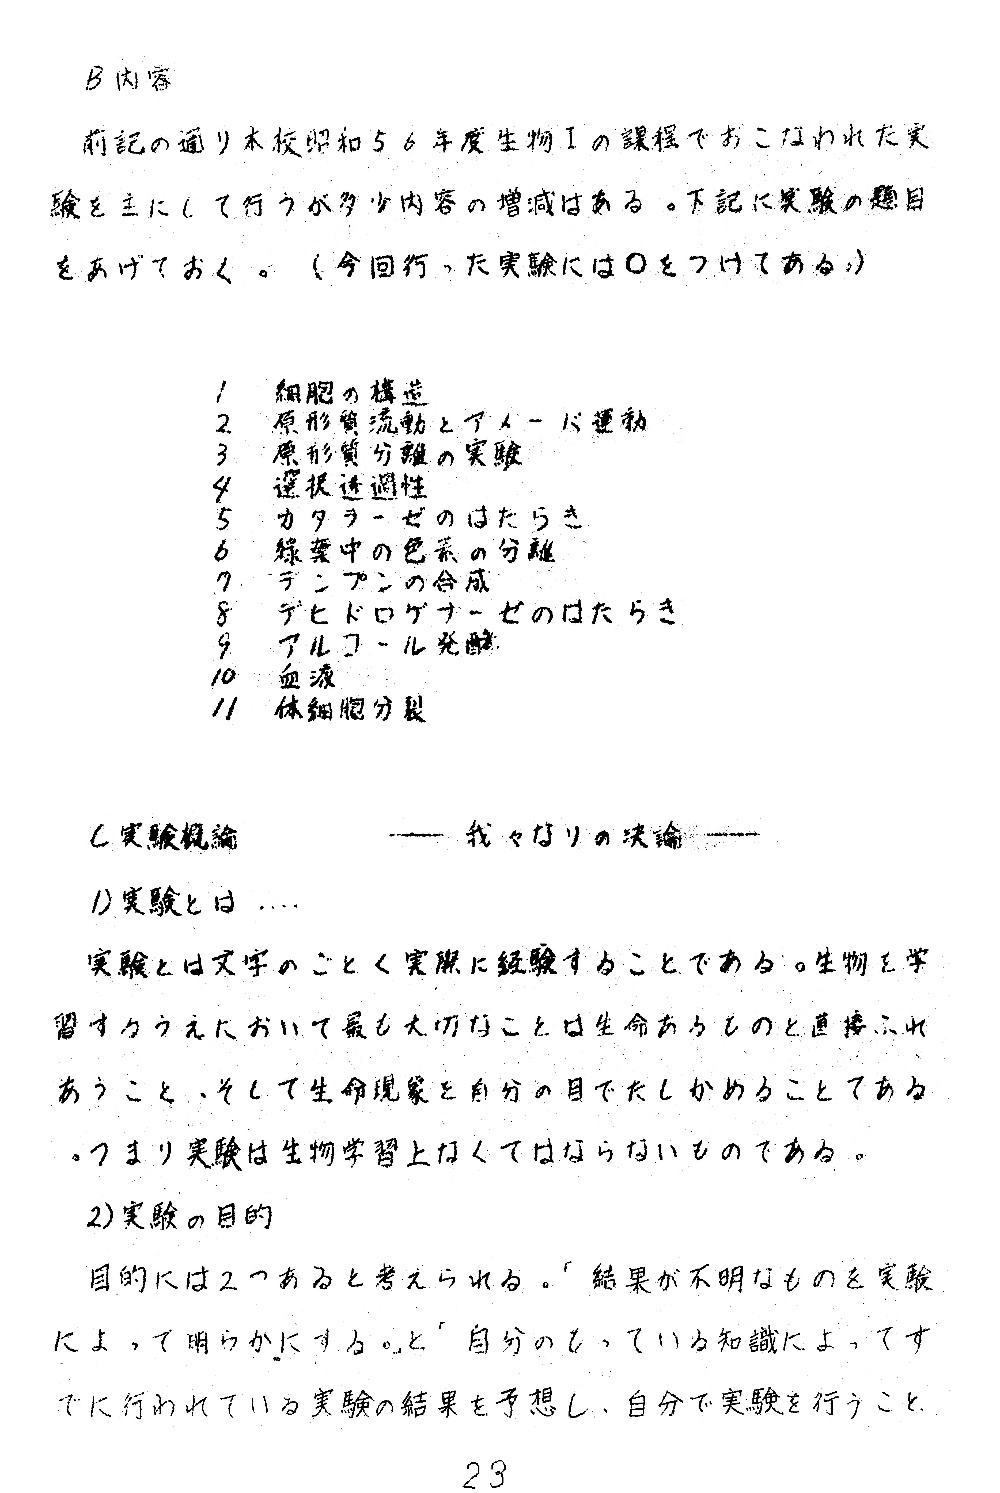 B内容
前記の通り本校昭和56年度生物Iの課程でおこなわれた実
験を主にして行うが多少内容の増減はある。下記に実験の題目
をあげておく。(今回行った実験には○をつけてある。)
1 細胞の構造
2 原形質流動とアメーバ運動
3 原形質分離の実験
4 選択透過性
5 カタラーゼのはたらき
6 緑葉中の色素の分離
7 デンプンの合成
8 デヒドロゲナーゼのはたらき
9 アルコール発酵
10 血液
11 体細胞分裂
C実験概論 ——我々なりの決論——
1)実験とは‥‥
実験とは文字のごとく実際に経験することである。生物を学
習するうえにおいて最も大切なことは生命あるものと直接ふれ
あうこと、そして生命現象を自分の目でたしかめることである
。つまり実験は生物学習上なくてはならないものである。
2)実験の目的
目的には2つあると考えられる。「結果が不明なものを実験
によって明らかにする。」と「自分のもっている知識によってす
でに行われている実験の結果を予想し、自分で実験を行うこと
23